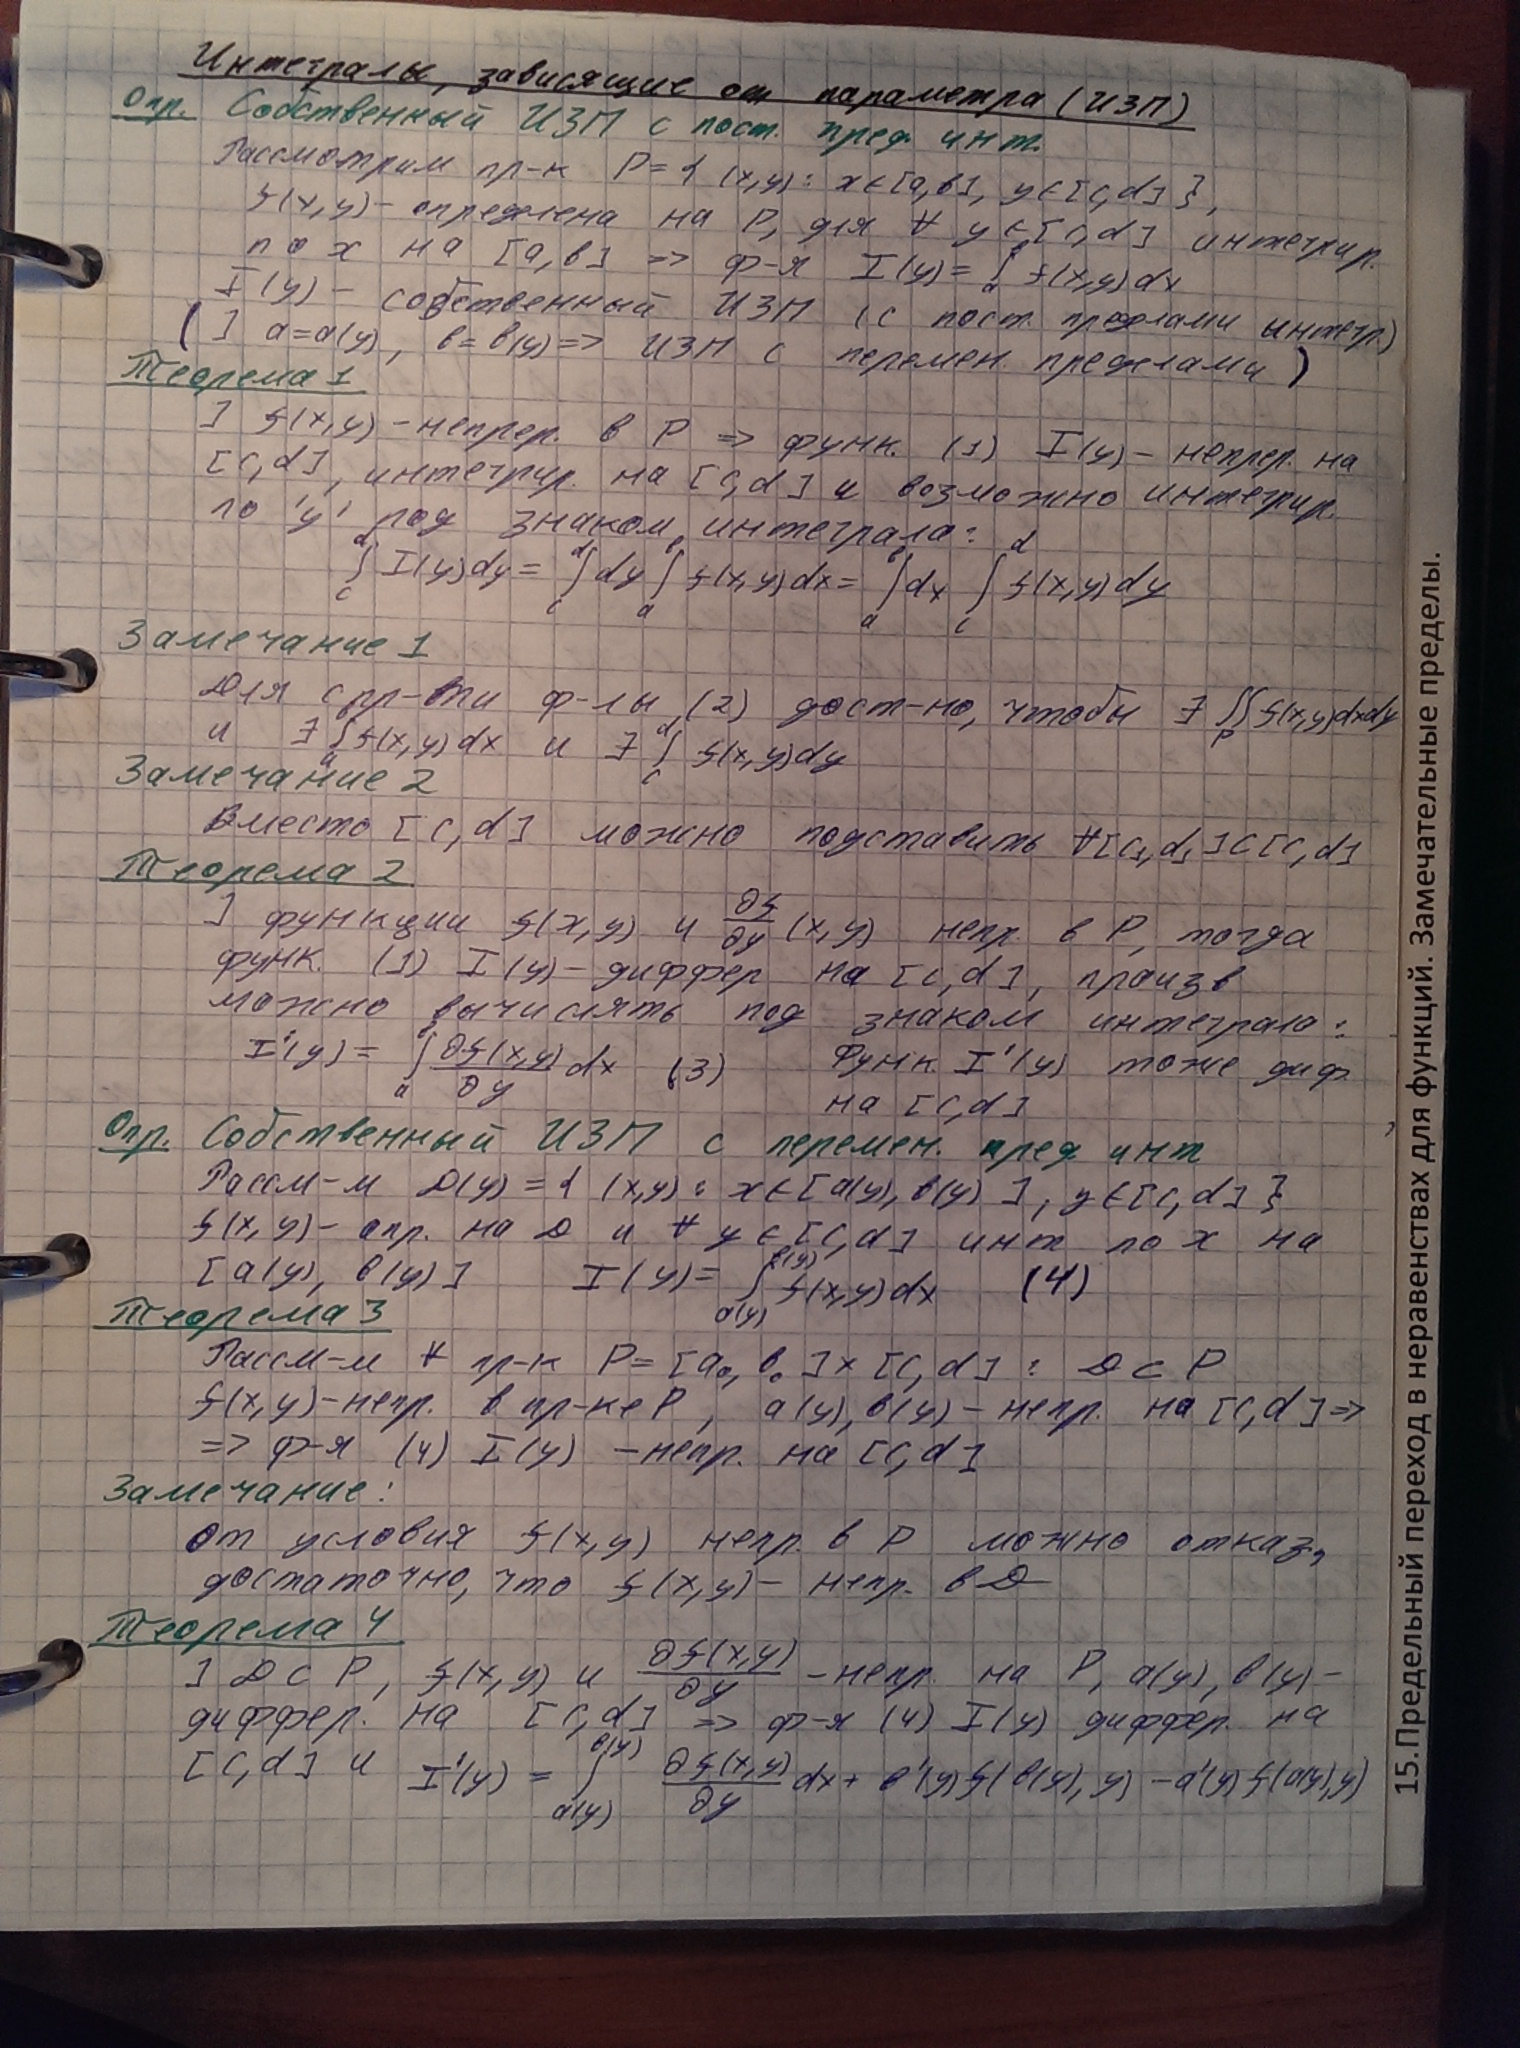 Интегралы, зависящие от параметра (ИЗП)
Опр. Собственный ИЗП с пост. пред. инт.
Рассмотрим пр-к P={(x,y): x∈[a,b], y∈[c,d]},
f(x,y) - определена на P, для ∀ y∈[c,d] интегрир.
по x на [a,b] => ф-я I(y)=∫ₐᵇ f(x,y)dx
I(y) - собственный ИЗП (с пост. пределами интегр.)
(] a=a(y), b=b(y) => ИЗП с перемен. пределами)
Теорема 1
] f(x,y) - непрер. в P => функ. (1) I(y) - непрер. на
[c,d], интегрир. на [c,d] и возможно интегрир.
по 'y' под знаком интеграла:
∫_c^d I(y)dy = ∫_c^d dy ∫_a^b f(x,y)dx = ∫_a^b dx ∫_c^d f(x,y)dy
Замечание 1
Для спр-ти ф-лы (2) дост-но, чтобы ∃ ∬_P f(x,y)dxdy
и ∃ ∫_a^b f(x,y)dx и ∃ ∫_c^d f(x,y)dy
Замечание 2
Вместо [c,d] можно подставить ∀[c₁,d₁]⊂[c,d]
Теорема 2
] функции f(x,y) и ∂f/∂y (x,y) непр. в P, тогда
функ. (1) I(y) - диффер на [c,d], произв
можно вычислять под знаком интеграла:
I'(y) = ∫_a^b ∂f(x,y)/∂y dx (3) Функ. I'(y) тоже диф.
на [c,d]
Опр. Собственный ИЗП с перемен. пред. инт
Рассм-м D(y)={(x,y): x∈[a(y), b(y)], y∈[c,d]}
f(x,y) - опр. на D и ∀ y∈[c,d] инт по x на
[a(y), b(y)] I(y)=∫_{a(y)}^{b(y)} f(x,y)dx (4)
Теорема 3
Рассм-м ∀ пр-к P=[a₀,b₀]×[c,d]: D⊂P
f(x,y) - непр. в пр-ке P, a(y), b(y) - непр. на [c,d] =>
=> ф-я (4) I(y) - непр. на [c,d]
Замечание:
От условия f(x,y) непр. в P можно отказ.,
достаточно, что f(x,y) - непр. в D
Теорема 4
] D⊂P, f(x,y) и ∂f(x,y)/∂y - непр. на P, a(y), b(y) -
диффер. на [c,d] => ф-я (4) I(y) диффер. на
[c,d] и I'(y) = ∫_{a(y)}^{b(y)} ∂f(x,y)/∂y dx + b'(y)f(b(y),y) - a'(y)f(a(y),y)
15.Предельный переход в неравенствах для функций. Замечательные пределы.